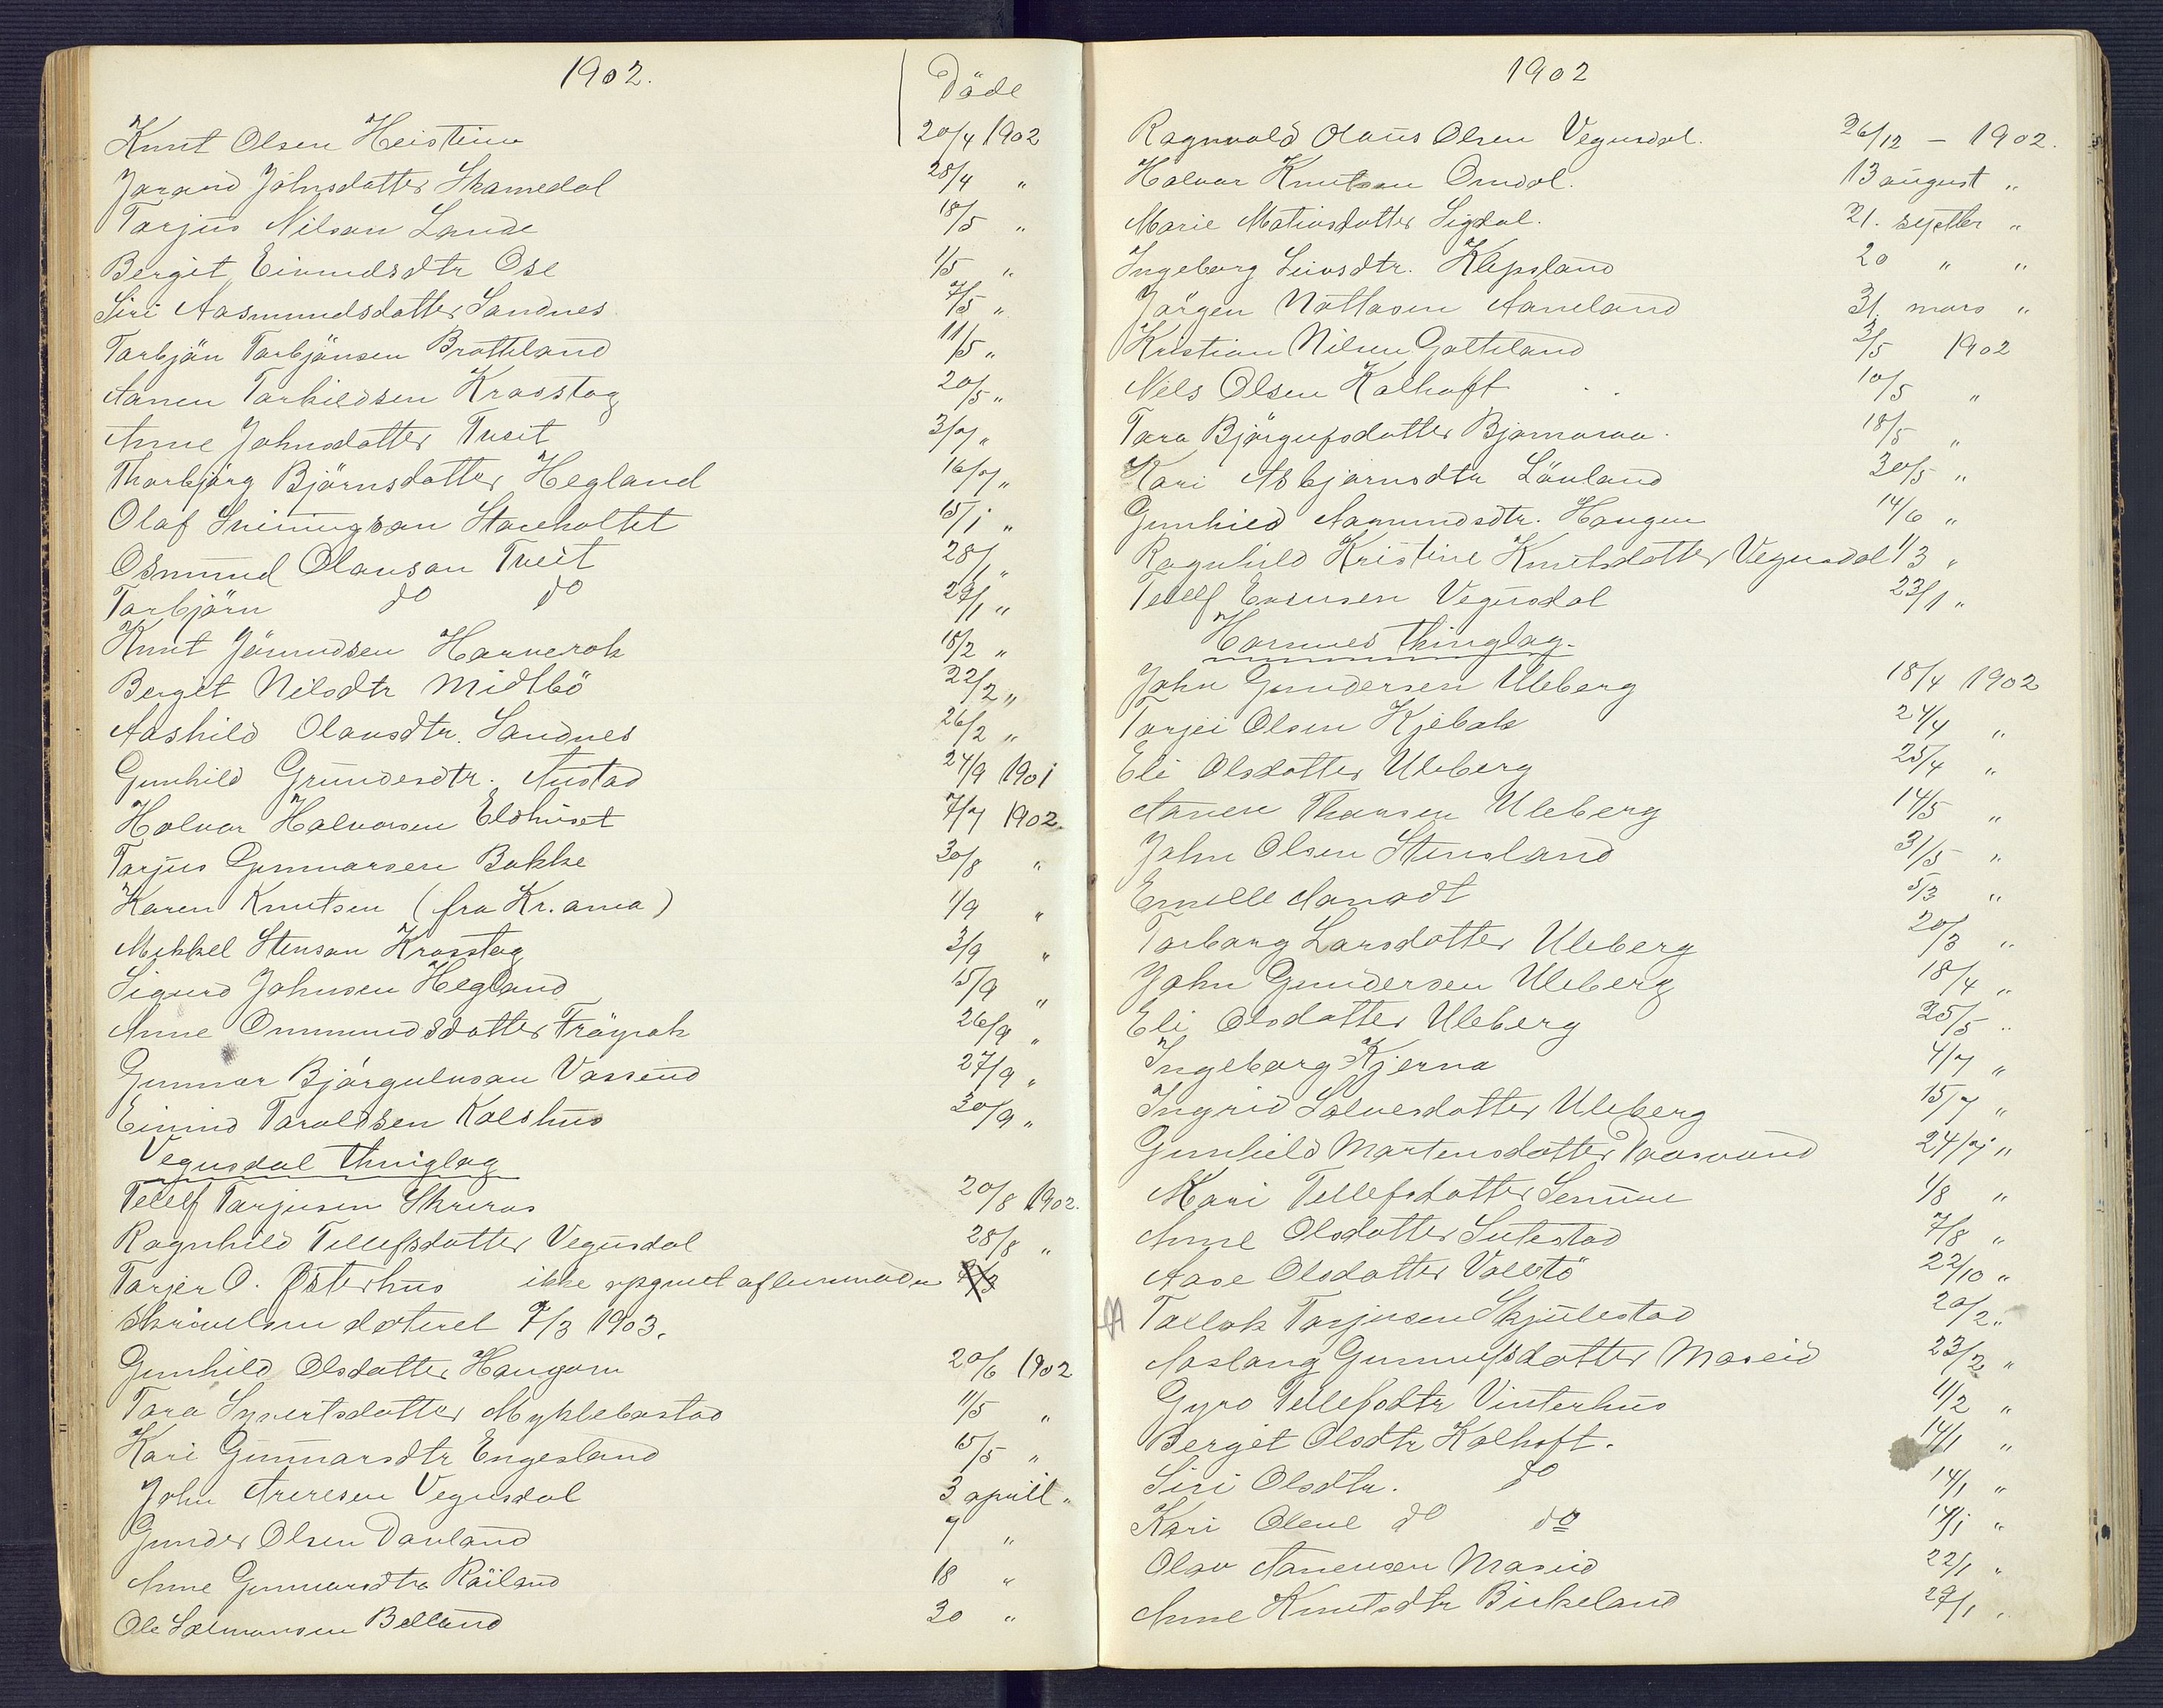 1902.
Döde
Knut Olsen Heistein 20/4 1902
Jorand Johnsdatter Skamedal 28/4 "
Tarjus Nilson Lande 18/5 "
Bergit Eivindsdtr Ose 1/5 "
Siri Aasmundsdatter Sandnes 7/5 "
Torbjön Torbjönsen Brotteland 11/5 "
Aanen Torkildsen Krosstog 20/5 "
Anne Johnsdatter Tveit 3/7 "
Thorbjörg Björnsdatter Hegland 16/7 "
Olaf 15/1 "
Osmund Olauson Tveit 28/1 "
Torbjörn do do 29/1 "
Knut Jörundsen Harverak 18/2 "
Berget Nilsdtr Midtbö 22/2 "
Aashild Olausdtr. Sandnes 26/2 "
Gunhild Grundesdtr. Austad 24/9 1901
Halvor Halvorsen Eldhuset 7/7 1902
Tarjus Gunnarsen Bakke 30/8 "
Karen Knutsen (fra Kr.ania) 1/9 "
Mikkel Stenson Krosstog 3/9 "
Sigurd Johnsen Hegland 15/9 "
Anne Ommundsdatter Fröyrak 26/9 "
Gunnar Björgulvson Vassend 27/9 "
Eivind Taroldsen Kolshus 30/9 "
Vegusdal Thinglag
Tellef Tarjusen Skreros 20/8 1902.
Ragnhild Tellefsdatter Vegusdal 28/8 "
Tarjer O. Østerhus ikke opgivet af lensmanden
Skrivelsen dateret 7/3 1903.
Gunhild Olsdatter Haugom 20/6 1902
Tora Syvertsdatter Myklebostad 11/5 "
Kari Gunnarsdtr Engesland 15/5 "
John Arnesen Vegusdal 3 april "
Gunder Olsen Dauland 7 "
Anne Gunnarsdtr Röiland 18 "
Ole Salmonsen Belland 30 "
1902
Ragnvald Olaus Olsen Vegusdal. 26/12 - 1902.
Halvor Knutson Omdal. 13 august "
Marie Matiasdatter Sigdal. 21. septbr "
Ingeborg Leivsdtr. Klepsland 20 " "
Jörgen Nottosen Aaneland 31. mars "
Kristian Nilsen Gotteland 3/5 1902
Nils Olsen Kalhoft 10/5 "
Tora Björgufsdatter Bjornaraa 18/5 "
Kari Asbjornsdtr Lövland 30/5 "
Gunhild Aamundsdtr. Haugen 14/6 "
Ragnhild Kristine Knutsdatter Vegusdal 1/3 "
Tellef Evensen Vegusdal 23/1 "
Hornnes thinglag.
John Gundersen Uleberg 18/4 1902
Torjei Olsen Kjebak 24/4 "
Eli Olsdatter Uleberg 25/4 "
Aanen Thorsen Uleberg 14/5 "
John Olsen Stensland 31/5 "
Emille Aanadt 5/3 "
Torborg Larsdatter Uleberg 20/3 "
John Gundersen Uleberg 18/4 "
Eli Olsdatter Uleberg 25/5 "
Ingeborg Kjerna 4/7 "
Ingrid Salvesdatter Uleberg 15/7 "
Gunhild Martensdatter 24/7 "
Kari Tellefsdatter Senum 1/8 "
Anne Olsdatter Sutestad 7/8 "
Aase Olsdatter Valstö 22/10 "
Tallak Tarjusen Skjulestad 20/2 "
Aaslaug Gunnufsdatter Maseid 23/2 "
Gyro Tellefsdtr Vinterhus 11/2 "
Berget Olsdtr Kalhoft. 14/1 "
Siri Olsdtr. do 14/1 "
Kari Olene do do 14/1 "
Olav Aanensen Maseid 22/1 "
Anne Knutsdtr Birkeland 27/1 "